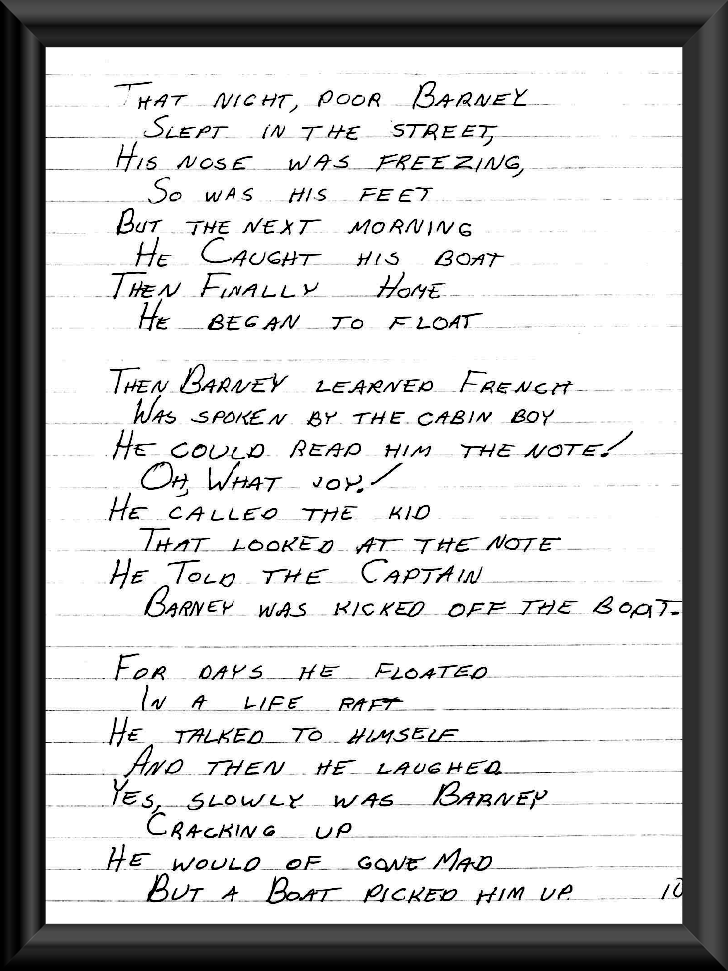 That night, poor Barney
Slept in the street,
His nose was freezing,
So was his feet
But the next morning
He Caught his boat
Then Finally Home
He began to float
Then Barney learned French
Was spoken by the cabin boy
He could read him the note!
Oh, What joy!
He called the kid
That looked at the note
He Told the Captain
Barney was kicked off the boat.
For days he floated
In a life raft
He talked to himself
And then he laughed
Yes, slowly was Barney
Cracking up
He would of gone Mad
But a Boat picked him up. 10